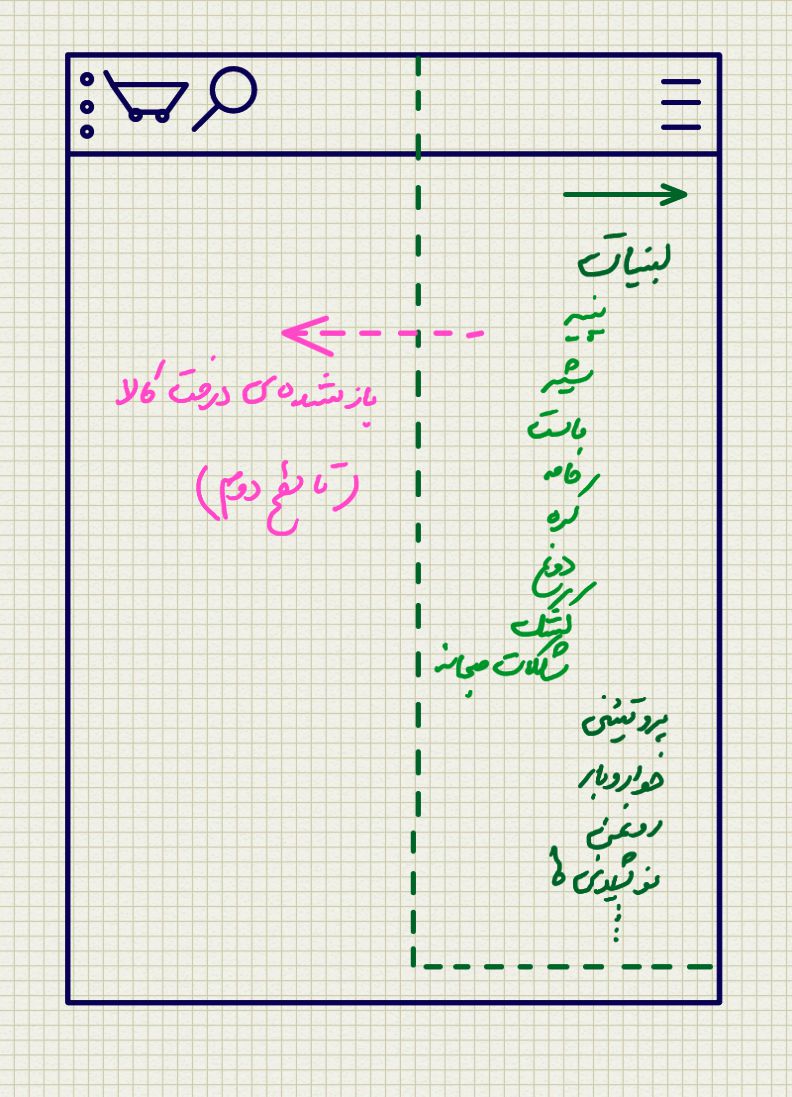 لبنیات
پنیر
شیر
ماست
خامه
کره
دوغ
کشک
شکلات صبحانه
پروتئینی
خواروبار
روغن
نوشیدنی ها
بازشده‌ی درخت کالا
(تا سطح دوم)